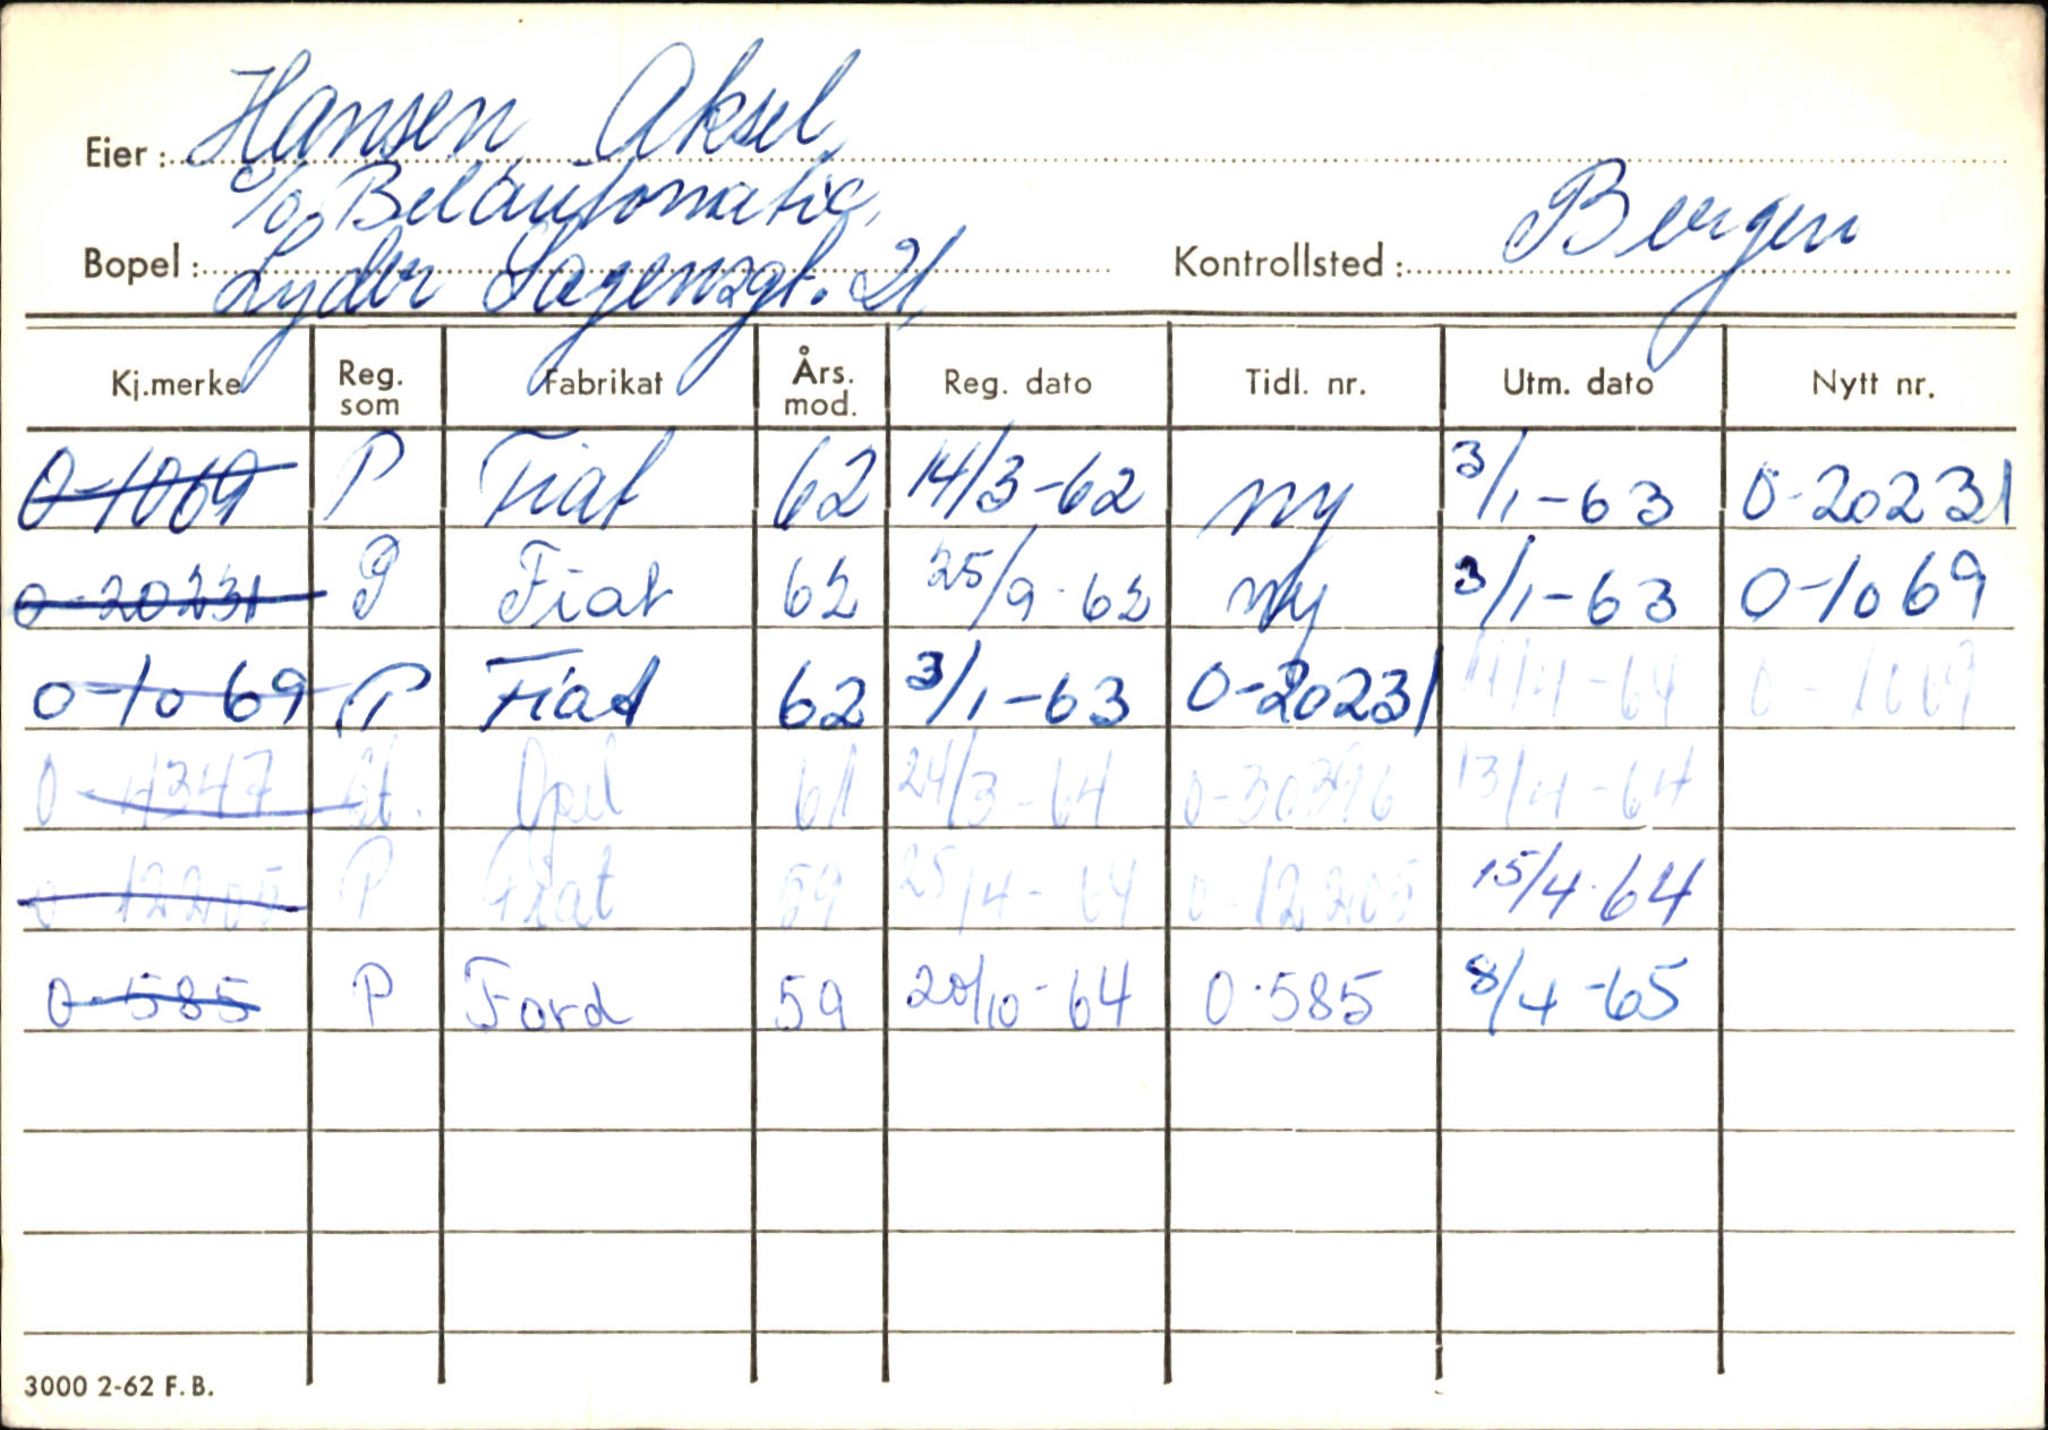 Eier: Hansen Aksel
c/o Belautomatic,
Bopel: Lyder Sagensgt. 21, Kontrollsted: Bergen
Kj.merke Reg. som Fabrikat Års. mod. Reg. dato Tidl. nr. Utm. dato Nytt nr.
O-1069 P Fiat 62 14/3-62 ny 3/1-63 O-20231
O-20231 P Fiat 62 25/9-62 ny 3/1-63 O-1069
O-1069 P Fiat 62 3/1-63 O-20231 11/4-64 O-1069
O-4347 St. Opel 61 24/3-64 O-30396 13/4-64
O-12205 P Fiat 59 25/4-64 O-12205 15/4-64
O-585 P Ford 59 20/10-64 O-585 8/4-65
3000 2-62 F.B.